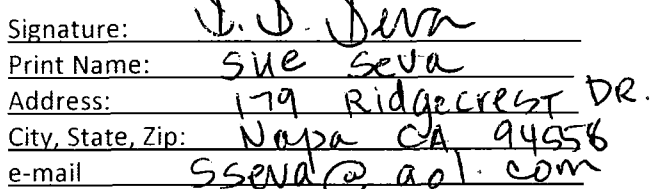 Signature: S. D. Seva
Print Name: Sue Seva
Address: 179 Ridgecrest DR.
City, State, Zip: Napa CA 94558
e-mail SSeva@aol.com